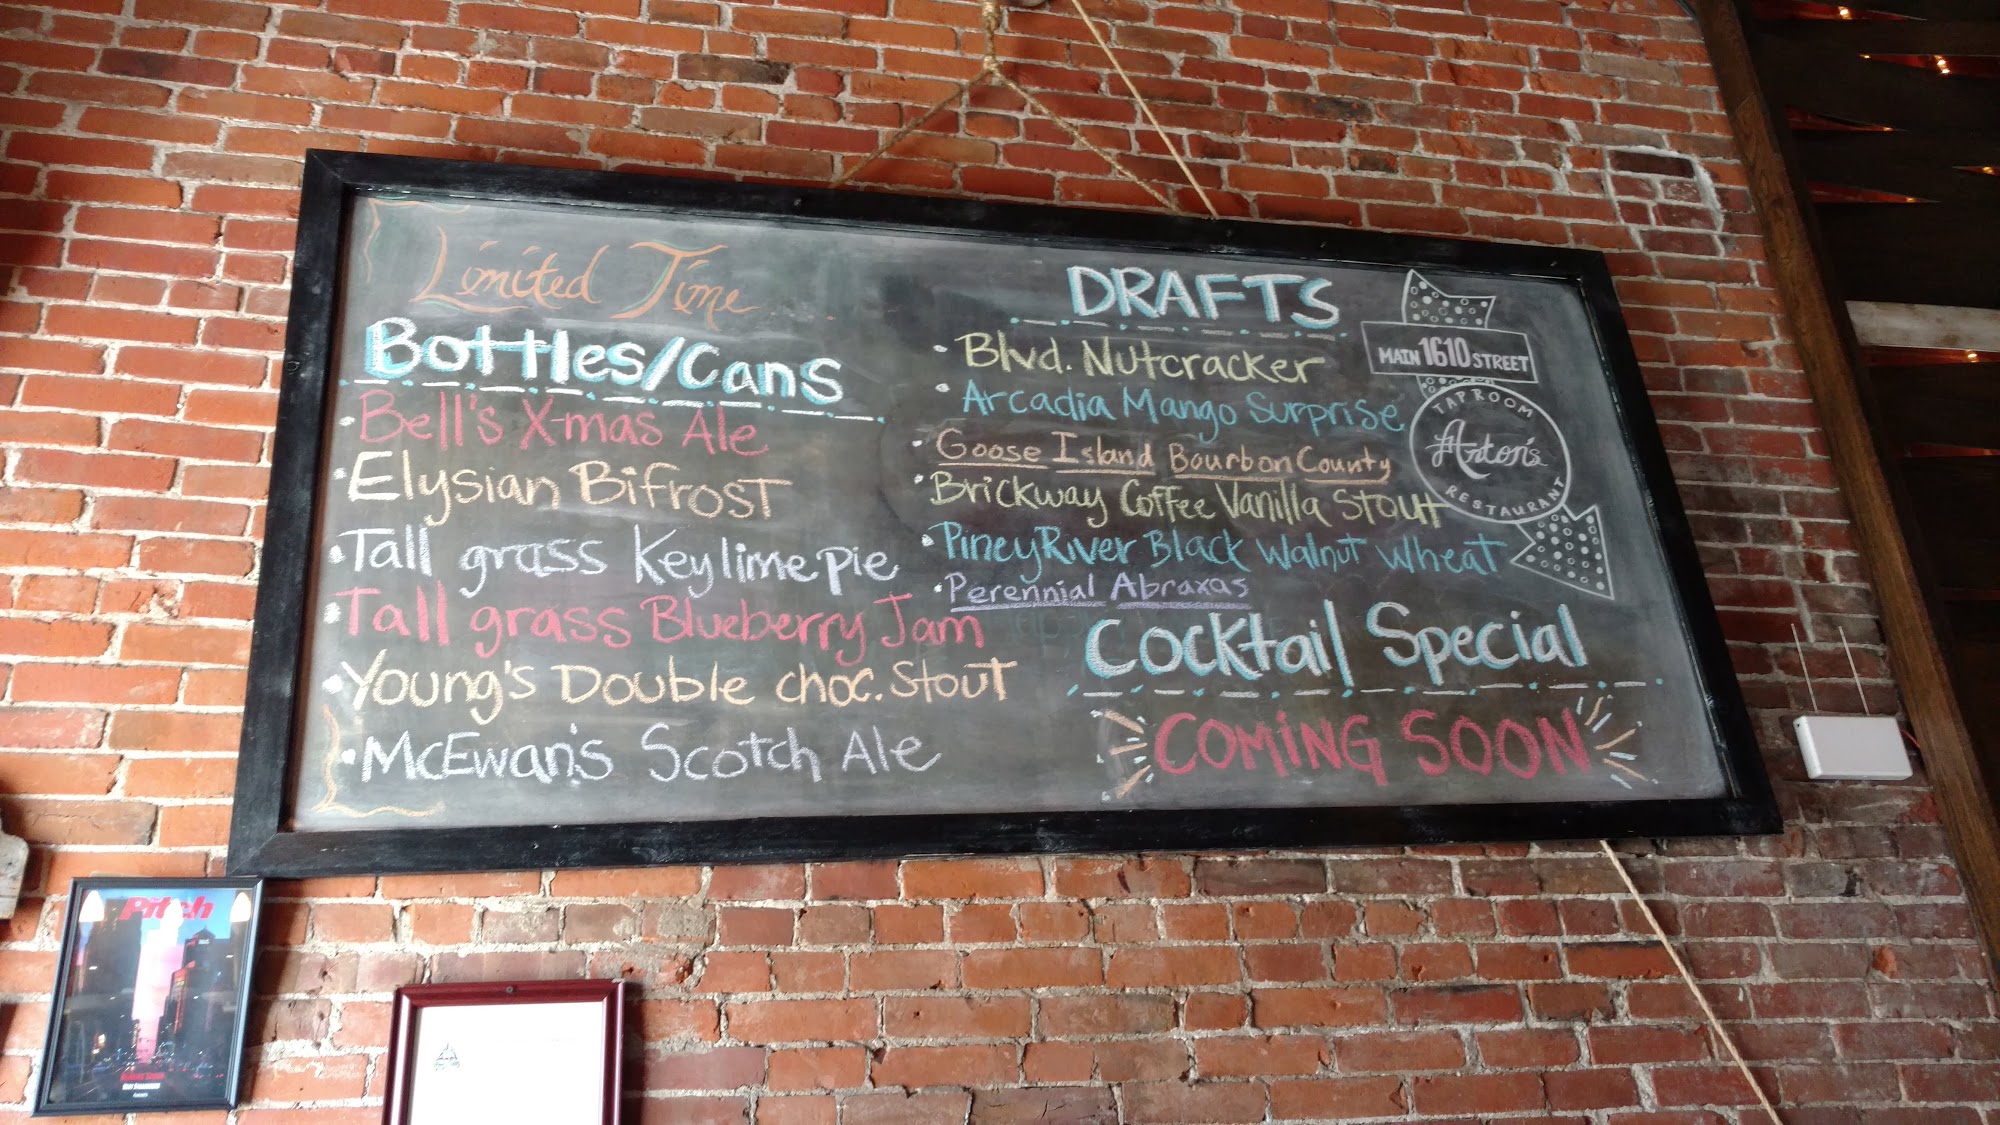 Limited Time
Bottles/Cans
• Bell's X-mas Ale
• Elysian Bifrost
• Tall grass Key lime pie
• Tall grass Blueberry Jam
• Young's Double choc. Stout
• McEwan's Scotch Ale
DRAFTS
• Blvd. Nutcracker
• Arcadia Mango Surprise
• Goose Island Bourbon County
• Brickway Coffee Vanilla Stout
• Piney River Black Walnut Wheat
• Perennial Abraxas
Cocktail Special
COMING SOON
MAIN 1610 STREET
TAPROOM
Anton's
RESTAURANT
Pitch